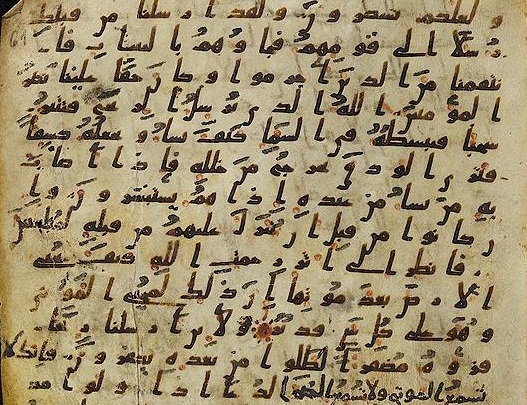 ولعلكم تشكرون ولقد ارسلنا من قبلك
رسلا الى قومهم فجاوهم بالبينات فا
نتقمنا من الذين اجرموا وكان حقا علينا نصر
المومنين الله الذي يرسل الريح فتثير
سحابا فيبسطه في السما كيف يشا ويجعله كسفا
فترى الودق يخرج من خلله فاذا اصاب
به من يشا من عباده اذا هم يستبشرون وا
ن كانوا من قبل ان ينزل عليهم من قبله لمبلسين
فانظر الى اثر رحمت الله كيف يحيي
الارض بعد موتها ان ذلك لمحيي الموتى
وهو على كل شي قدير ولين ارسلنا ريحا
فراوه مصفرا لظلوا من بعده يكفرون فانك لا
تسمع الموتى ولا تسمع الصم الدعا اذا ولوا مد